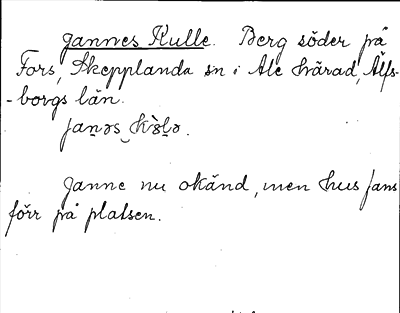 Jannes Kulle. Berg söder på
Fors, Skepplanda sn i Ale härad, Älfs-
-borgs län.
janəs
Janne nu okänd, men hus fans
förr på platsen.